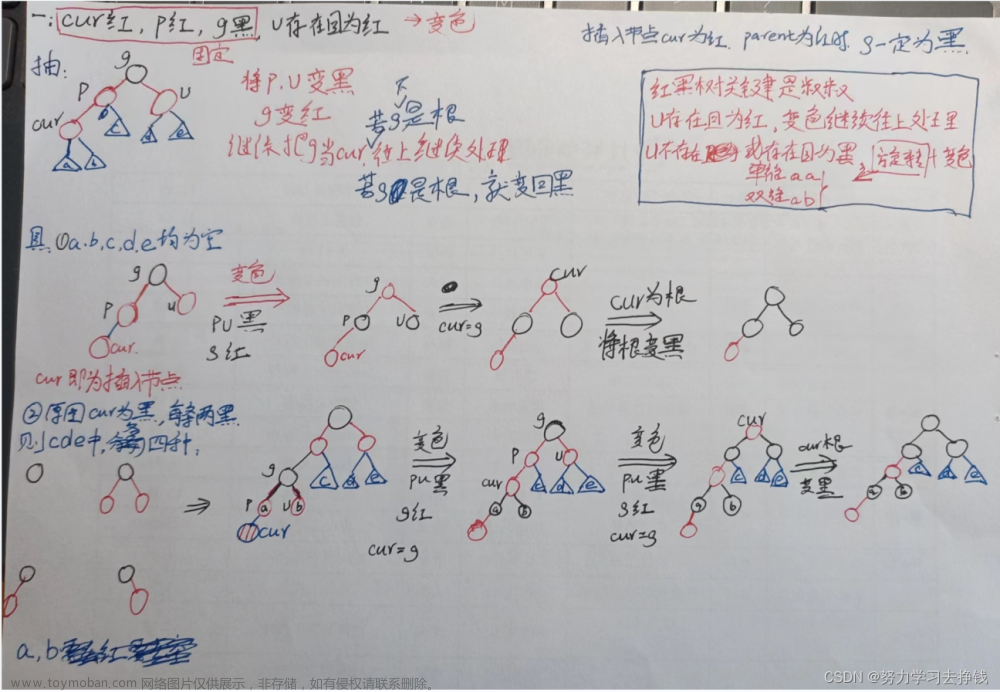 一: cur红, p红, g黑, u存在且为红 → 变色
固定
插入节点cur为红. parent为红时, g一定为黑
抽:
g
p
u
cur
a b c d e
将p, u变黑
g变红
继续把g当cur往上继续处理
不
若g是根
若g是根, 就变回黑
红黑树关键是叔叔
u存在且为红, 变色继续往上处理
u不存在 或存在且为黑, 旋转+变色
单旋 aa
双旋 ab
具: ①a.b.c.d.e均为空
g
p
u
cur.
变色
pu黑
g红
g
p
u
cur
cur=g
cur
cur为根
将根变黑
cur即为插入节点
②原因cur为黑, 每条两黑
则cde中, 四种;
g
p a u b
cur
c d e
变色
pu黑
g红
cur=g
g
p
u
cur
a b c d e
变色
pu黑
g红
cur=g
cur
c d e
a b
cur根
变黑
c d e
a b
a, b
CSDN @努力学习去挣钱
www.toymoban.com 网络图片仅供展示，非存储，如有侵权请联系删除。